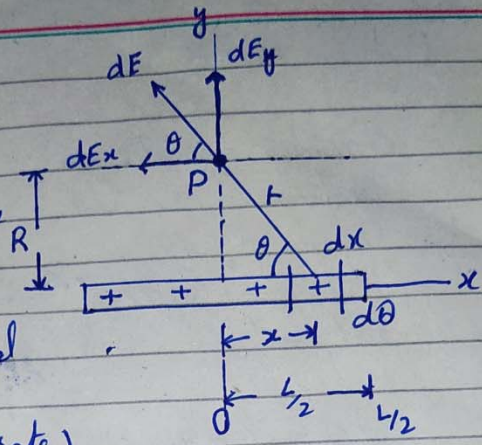 y
dE
dEy
dEx
θ
P
r
R
θ
dx
+ + + +
x
dθ
x
L/2
L/2
O